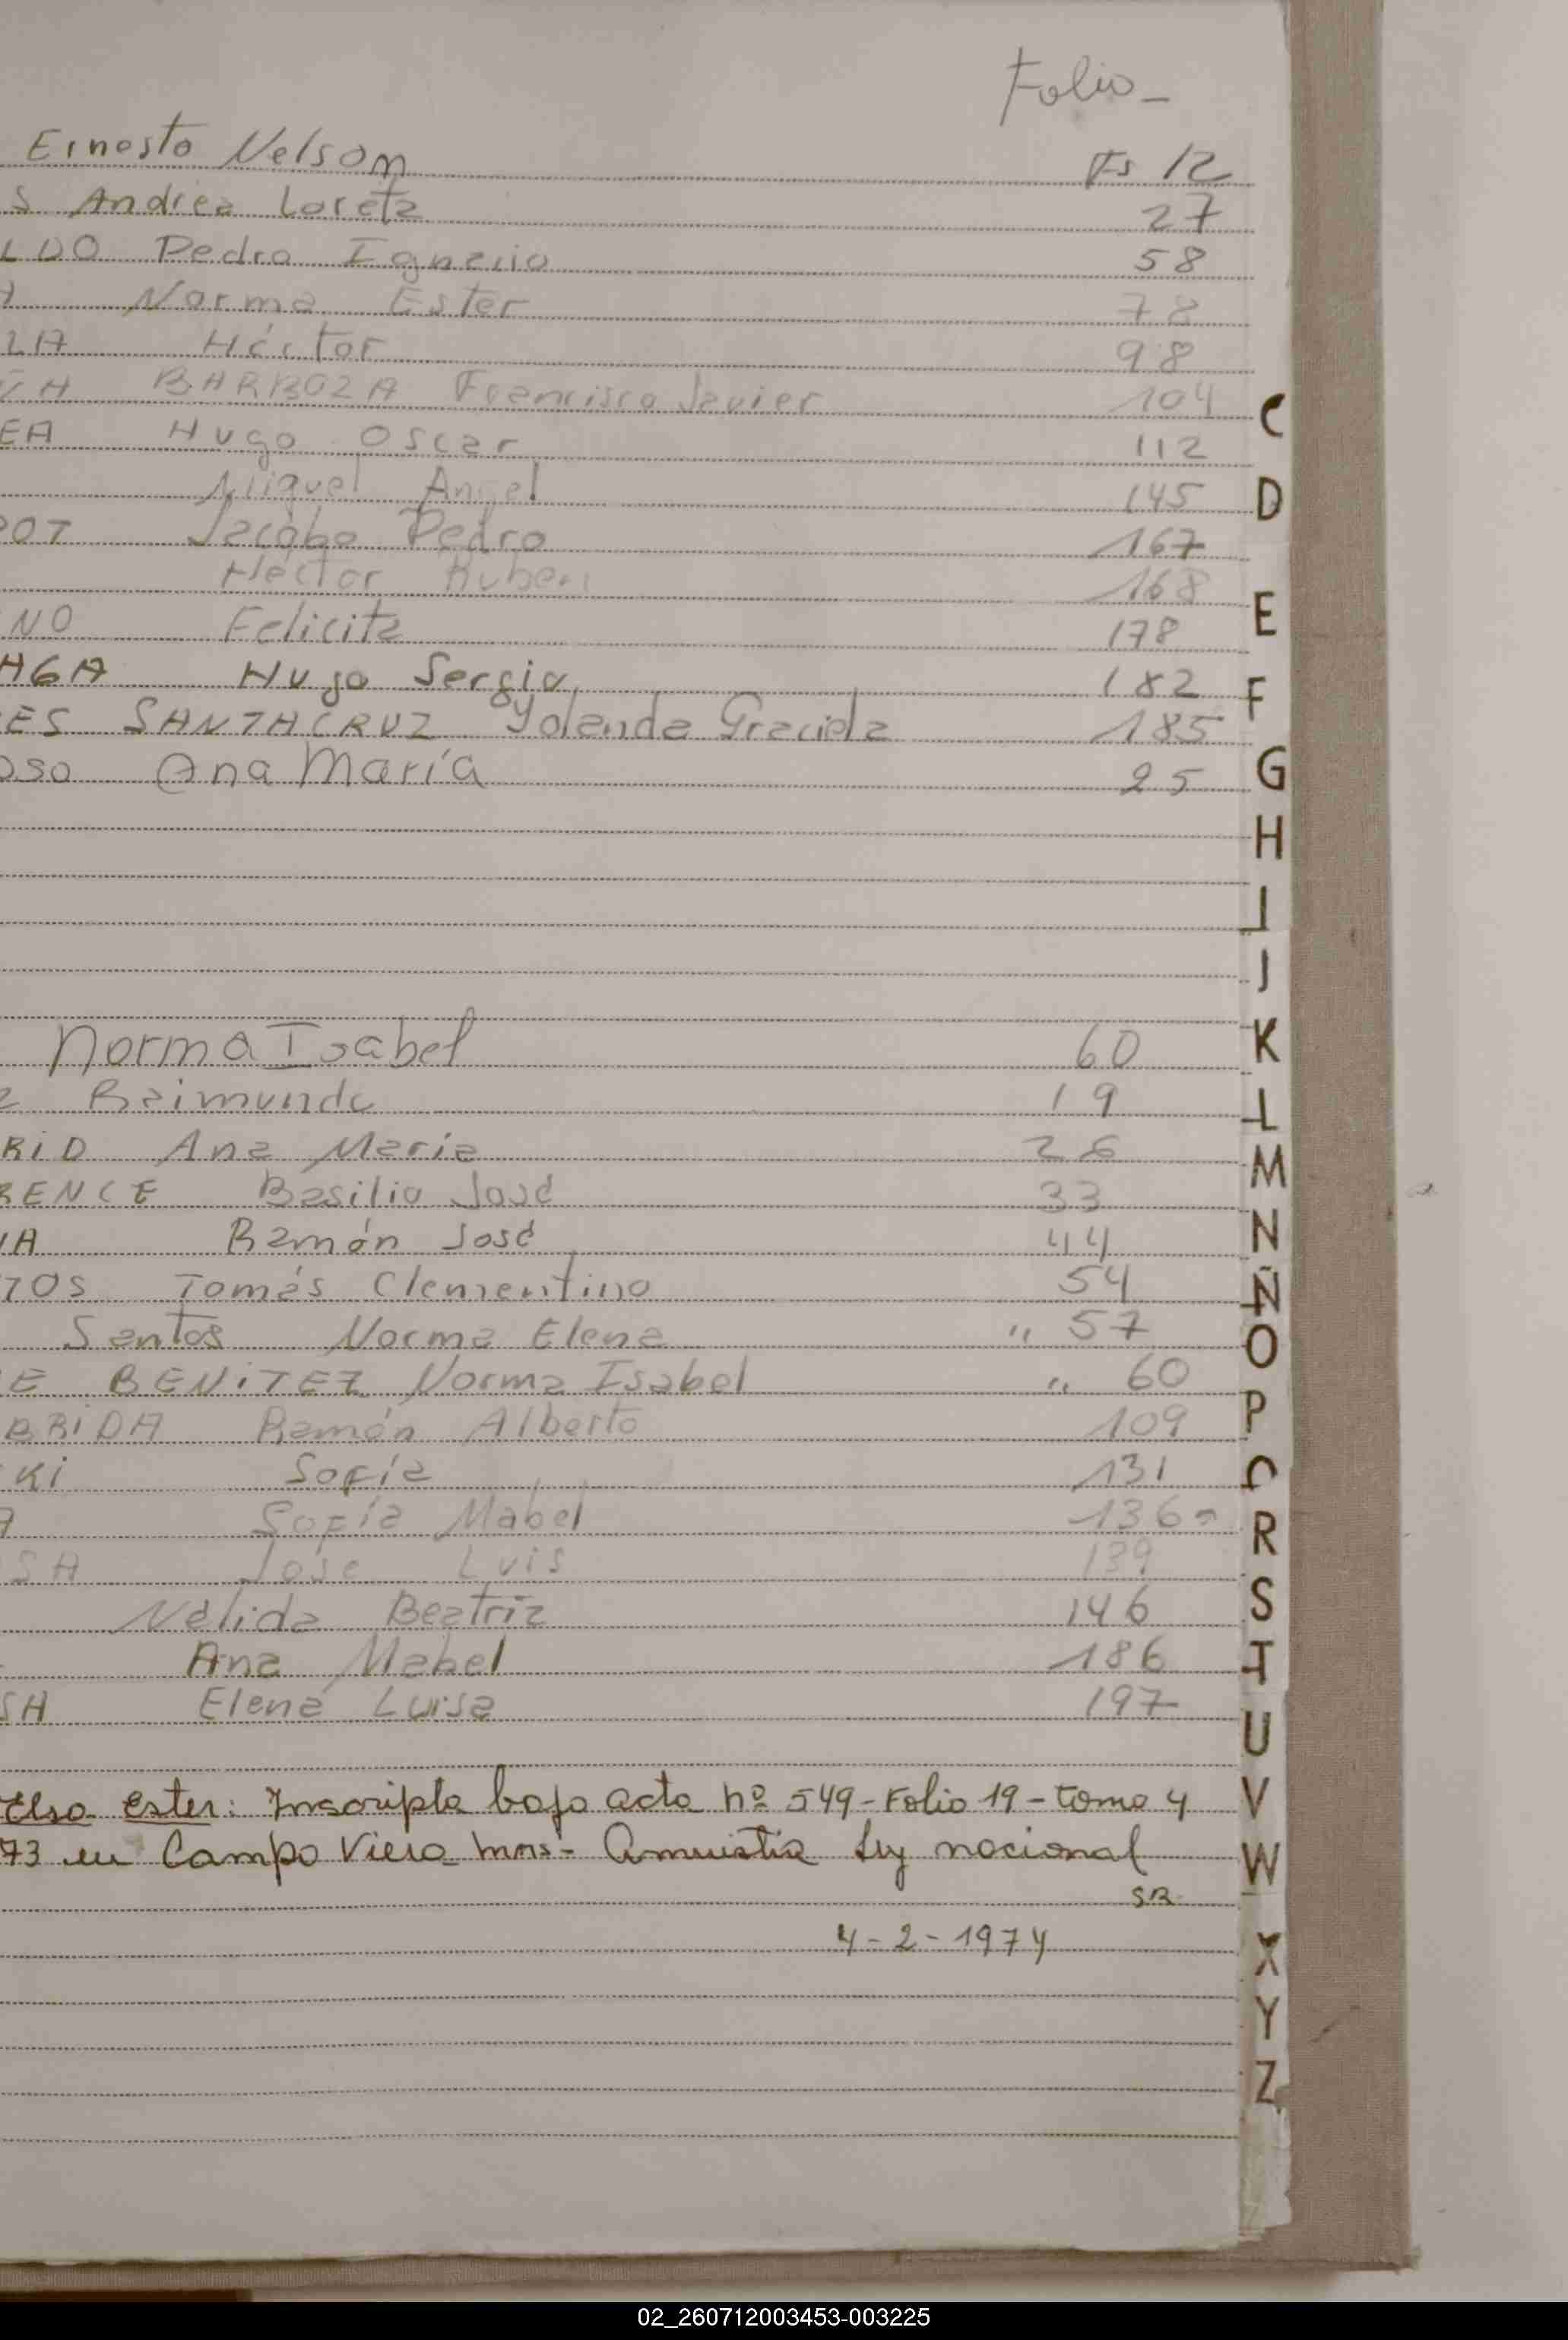 Folio_
Ernesto Nelson Fs 12
S Andrea Loreta 27
LDO Pedro Ignacio 58
A Norma Ester 78
ZA Héctor 98
BARBOZA Francisco Javier 104
EA Hugo Oscar 112
Miguel Angel 145
ROT Jacobo Pedro 167
Héctor Ruben 168
NO Felicita 178
AGA Hugo Sergio 182
ES SANTACRUZ Yolanda Graciela 185
OSO Ana María 25
Norma Isabel 60
Raimundo 19
RID Ana María 26
RENCE Basilio José 33
IA Ramón José 44
TOS Tomás Clementino 54
Santos Norma Elena " 57
E BENITEZ Norma Isabel " 60
BRIDA Ramón Alberto 109
KI Sofía 131
Sofía Mabel 136
SA José Luis 139
Nélida Beatríz 146
Ana Mabel 186
SA Elena Luisa 197
Elsa Ester: Inscripta bajo acta nº 549 - Folio 19 - Tomo 4
73 en Campo Viera Mns - Amnistía Ley nacional
SR
4-2-1974
C
D
E
F
G
H
I
J
K
L
M
N
Ñ
O
P
R
S
T
U
V
W
X
Y
Z
02_260712003453-003225